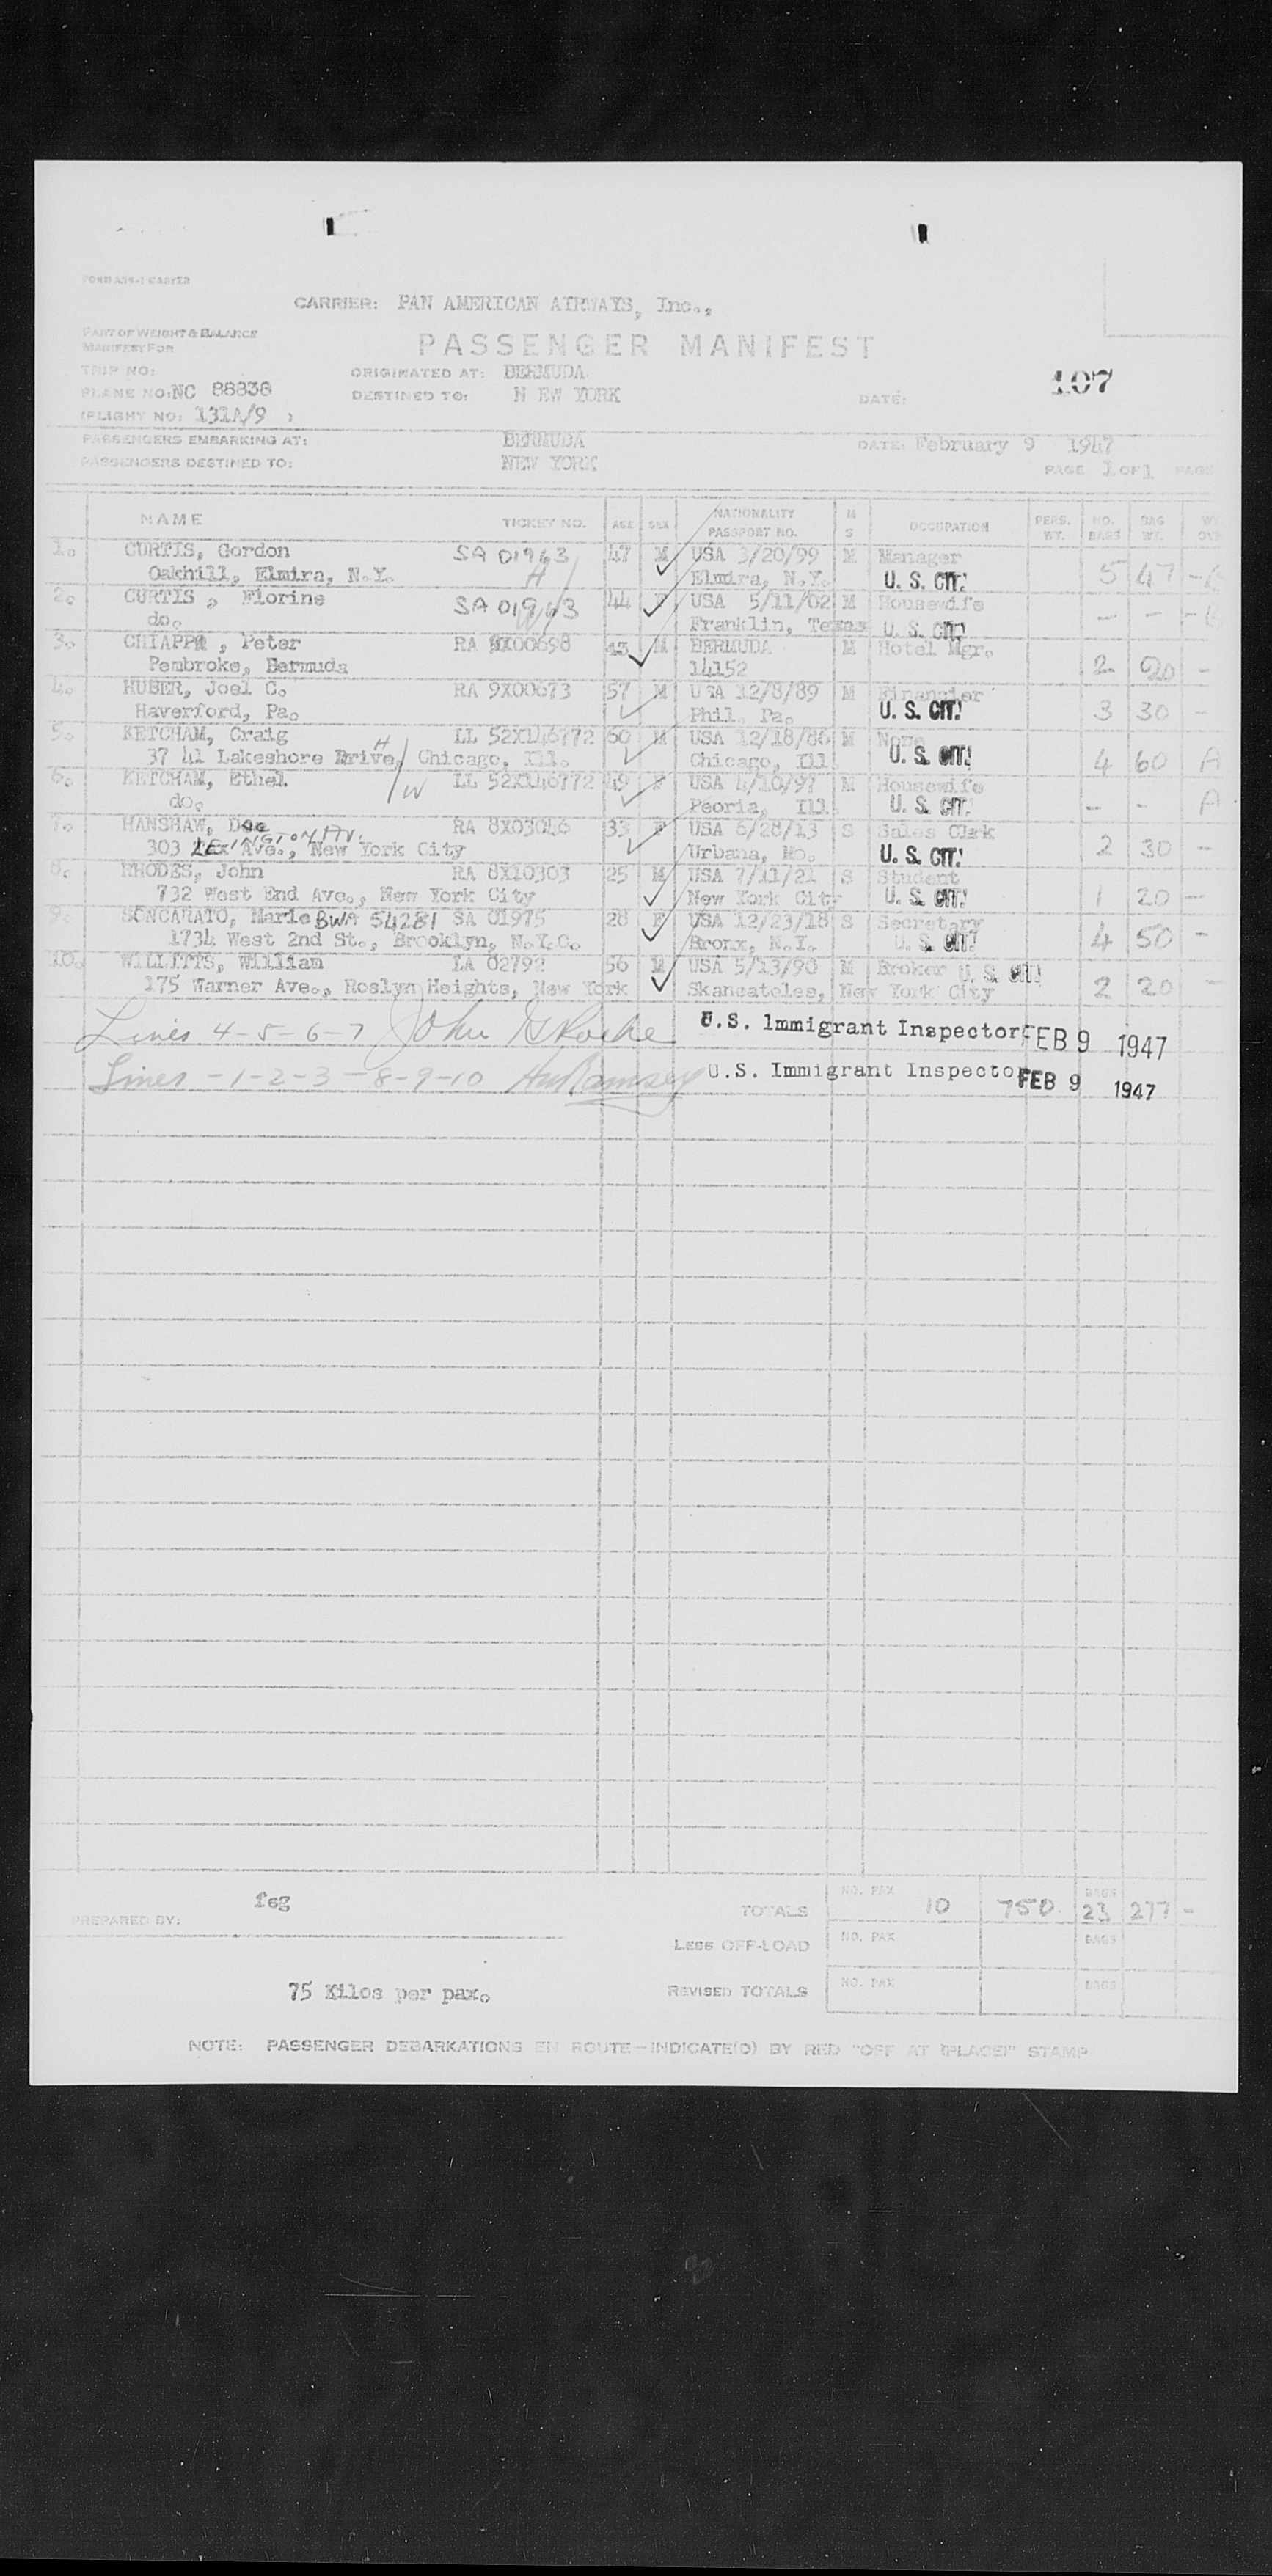 CARRIER: PAN AMERICAN AIRWAYS, Inc.,
PART OF WEIGHT & BALANCE
MANIFEST FOR
PASSENGER MANIFEST
TRIP NO:
ORIGINATED AT: BERMUDA
107
PLANE NO: NC 88838
DESTINED TO: N EW YORK
DATE:
(FLIGHT NO: 131A/9 )
PASSENGERS EMBARKING AT: BERMUDA DATE: February 9 1947
PASSENGERS DESTINED TO: NEW YORK PAGE 1 OF 1 PAGE
NAME TICKET NO. AGE SEX NATIONALITY PASSPORT NO. M S OCCUPATION PERS. WT. NO. BAGS BAG WT.
1. CURTIS, Gordon SA 01963 47 M USA 3/20/99 M Manager
Oakhill, Elmira, N.Y. H Elmira, N.Y. U. S. CIT. 5 47 -
2. CURTIS , Florine SA 01963 44 F USA 5/11/02 M Housewife
do. W Franklin, Texas U. S. CIT. - - -
3. CHIAPPA , Peter RA 9X00698 43 M BERMUDA M Hotel Mgr.
Pembroke, Bermuda 14152 2 20 -
4. HUBER, Joel C. RA 9X00673 57 M USA 12/8/89 M Financier
Haverford, Pa. Phil. Pa. U. S. CIT. 3 30 -
5. KETCHAM, Craig LL 52X146772 60 M USA 12/18/86 M None
37 41 Lakeshore Drive, Chicago, Ill. H Chicago, Ill U. S. CIT. 4 60 A
6. KETCHAM, Ethel LL 52X146772 49 F USA 4/10/97 M Housewife
do. W Peoria, Ill U. S. CIT. - - A
7. HANSHAW, Dee RA 8X03046 33 F USA 6/28/13 S Sales Clerk
303 LEXINGTON AV. Ave., New York City Urbana, Mo. U. S. CIT. 2 30 -
8. RHODES, John RA 8X10303 25 M USA 7/11/21 S Student
732 West End Ave., New York City New York City U. S. CIT. 1 20 -
9. SONCARATO, Marie BWA 54281 SA 01975 28 F USA 12/23/18 S Secretary
1734 West 2nd St., Brooklyn, N.Y.C. Bronx, N.Y. U. S. CIT. 4 50 -
10. WILLITTS, William LA 02792 56 M USA 5/13/90 M Broker U. S. CIT.
175 Warner Ave., Roslyn Heights, New York Skaneateles, New York City 2 20 -
Lines 4-5-6-7 John Roche U.S. Immigrant Inspector FEB 9 1947
Lines -1-2-3-8-9-10 Ramsey U.S. Immigrant Inspector FEB 9 1947
PREPARED BY: feg
TOTALS NO. PAX 10 750 BAGS 23 277 -
LESS OFF-LOAD NO. PAX BAGS
75 Kilos per pax.
REVISED TOTALS NO. PAX BAGS
NOTE: PASSENGER DEBARKATIONS EN ROUTE—INDICATE(D) BY RED "OFF AT (PLACE)" STAMP